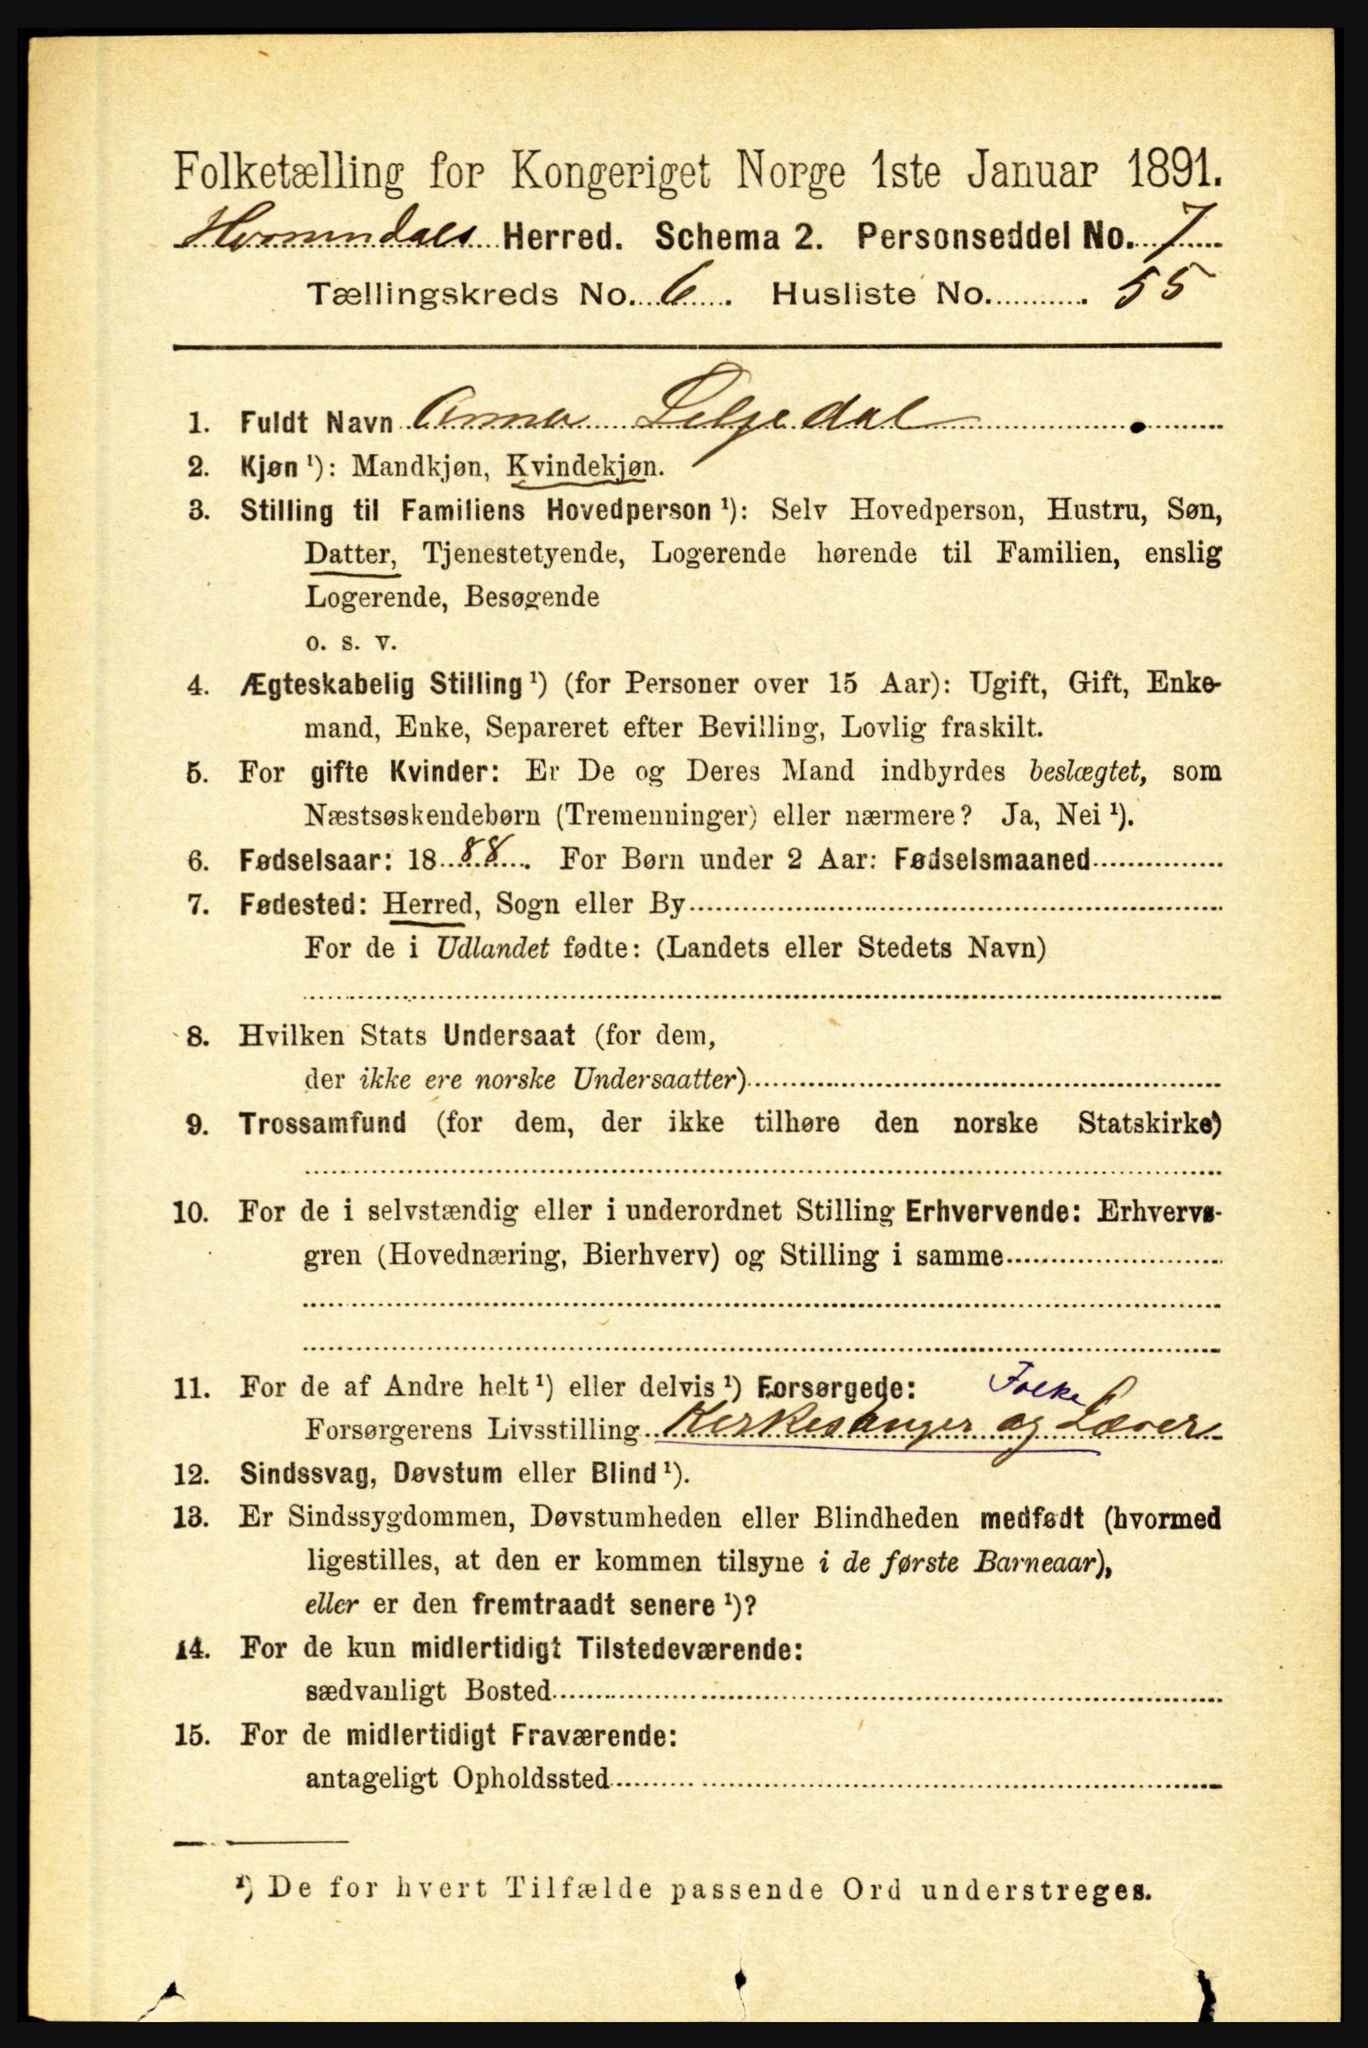 Folketælling for Kongeriget Norge 1ste Januar 1891.
Hornindals Herred. Schema 2. Personseddel No. 7
Tællingskreds No. 6. Husliste No. 55
1. Fuldt Navn Anna Liljedal
2. Kjøn ¹): Mandkjøn, Kvindekjøn.
3. Stilling til Familiens Hovedperson ¹): Selv Hovedperson, Hustru, Søn,
Datter, Tjenestetyende, Logerende hørende til Familien, enslig
Logerende, Besøgende
o. s. v.
4. Ægteskabelig Stilling ¹) (for Personer over 15 Aar): Ugift, Gift, Enke-
mand, Enke, Separeret efter Bevilling, Lovlig fraskilt.
5. For gifte Kvinder: Er De og Deres Mand indbyrdes beslægtet, som
Næstsøskendebørn (Tremenninger) eller nærmere? Ja, Nei ¹).
6. Fødselsaar: 18 88. For Børn under 2 Aar: Fødselsmaaned
7. Fødested: Herred, Sogn eller By
For de i Udlandet fødte: (Landets eller Stedets Navn)
8. Hvilken Stats Undersaat (for dem,
der ikke ere norske Undersaatter)
9. Trossamfund (for dem, der ikke tilhøre den norske Statskirke)
10. For de i selvstændig eller i underordnet Stilling Erhvervende: Erhvervs-
gren (Hovednæring, Bierhverv) og Stilling i samme
11. For de af Andre helt ¹) eller delvis ¹) Forsørgede: Folke
Forsørgerens Livsstilling Kirkesanger og Lærer
12. Sindssvag, Døvstum eller Blind ¹).
13. Er Sindssygdommen, Døvstumheden eller Blindheden medfødt (hvormed
ligestilles, at den er kommen tilsyne i de første Barneaar),
eller er den fremtraadt senere ¹)?
14. For de kun midlertidigt Tilstedeværende:
sædvanligt Bosted
15. For de midlertidigt Fraværende:
antageligt Opholdssted
¹) De for hvert Tilfælde passende Ord understreges.